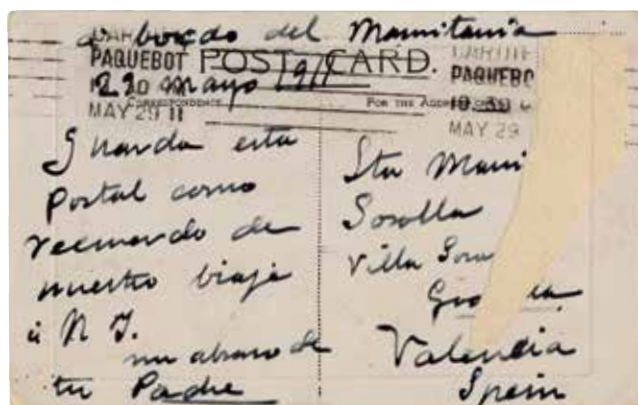 a bordo del Mauritania
PAQUEBOT
POST CARD.
PAQUEBO
29 Mayo 1911
CORRESPONDENCE
FOR THE ADD
MAY 29 11
MAY 29
Guarda esta
Postal como
recuerdo de
nuestro viaje
a N Y.
un abrazo de
tu Padre
Sta Mari
Sorolla
Villa Soro
Valencia
Spain